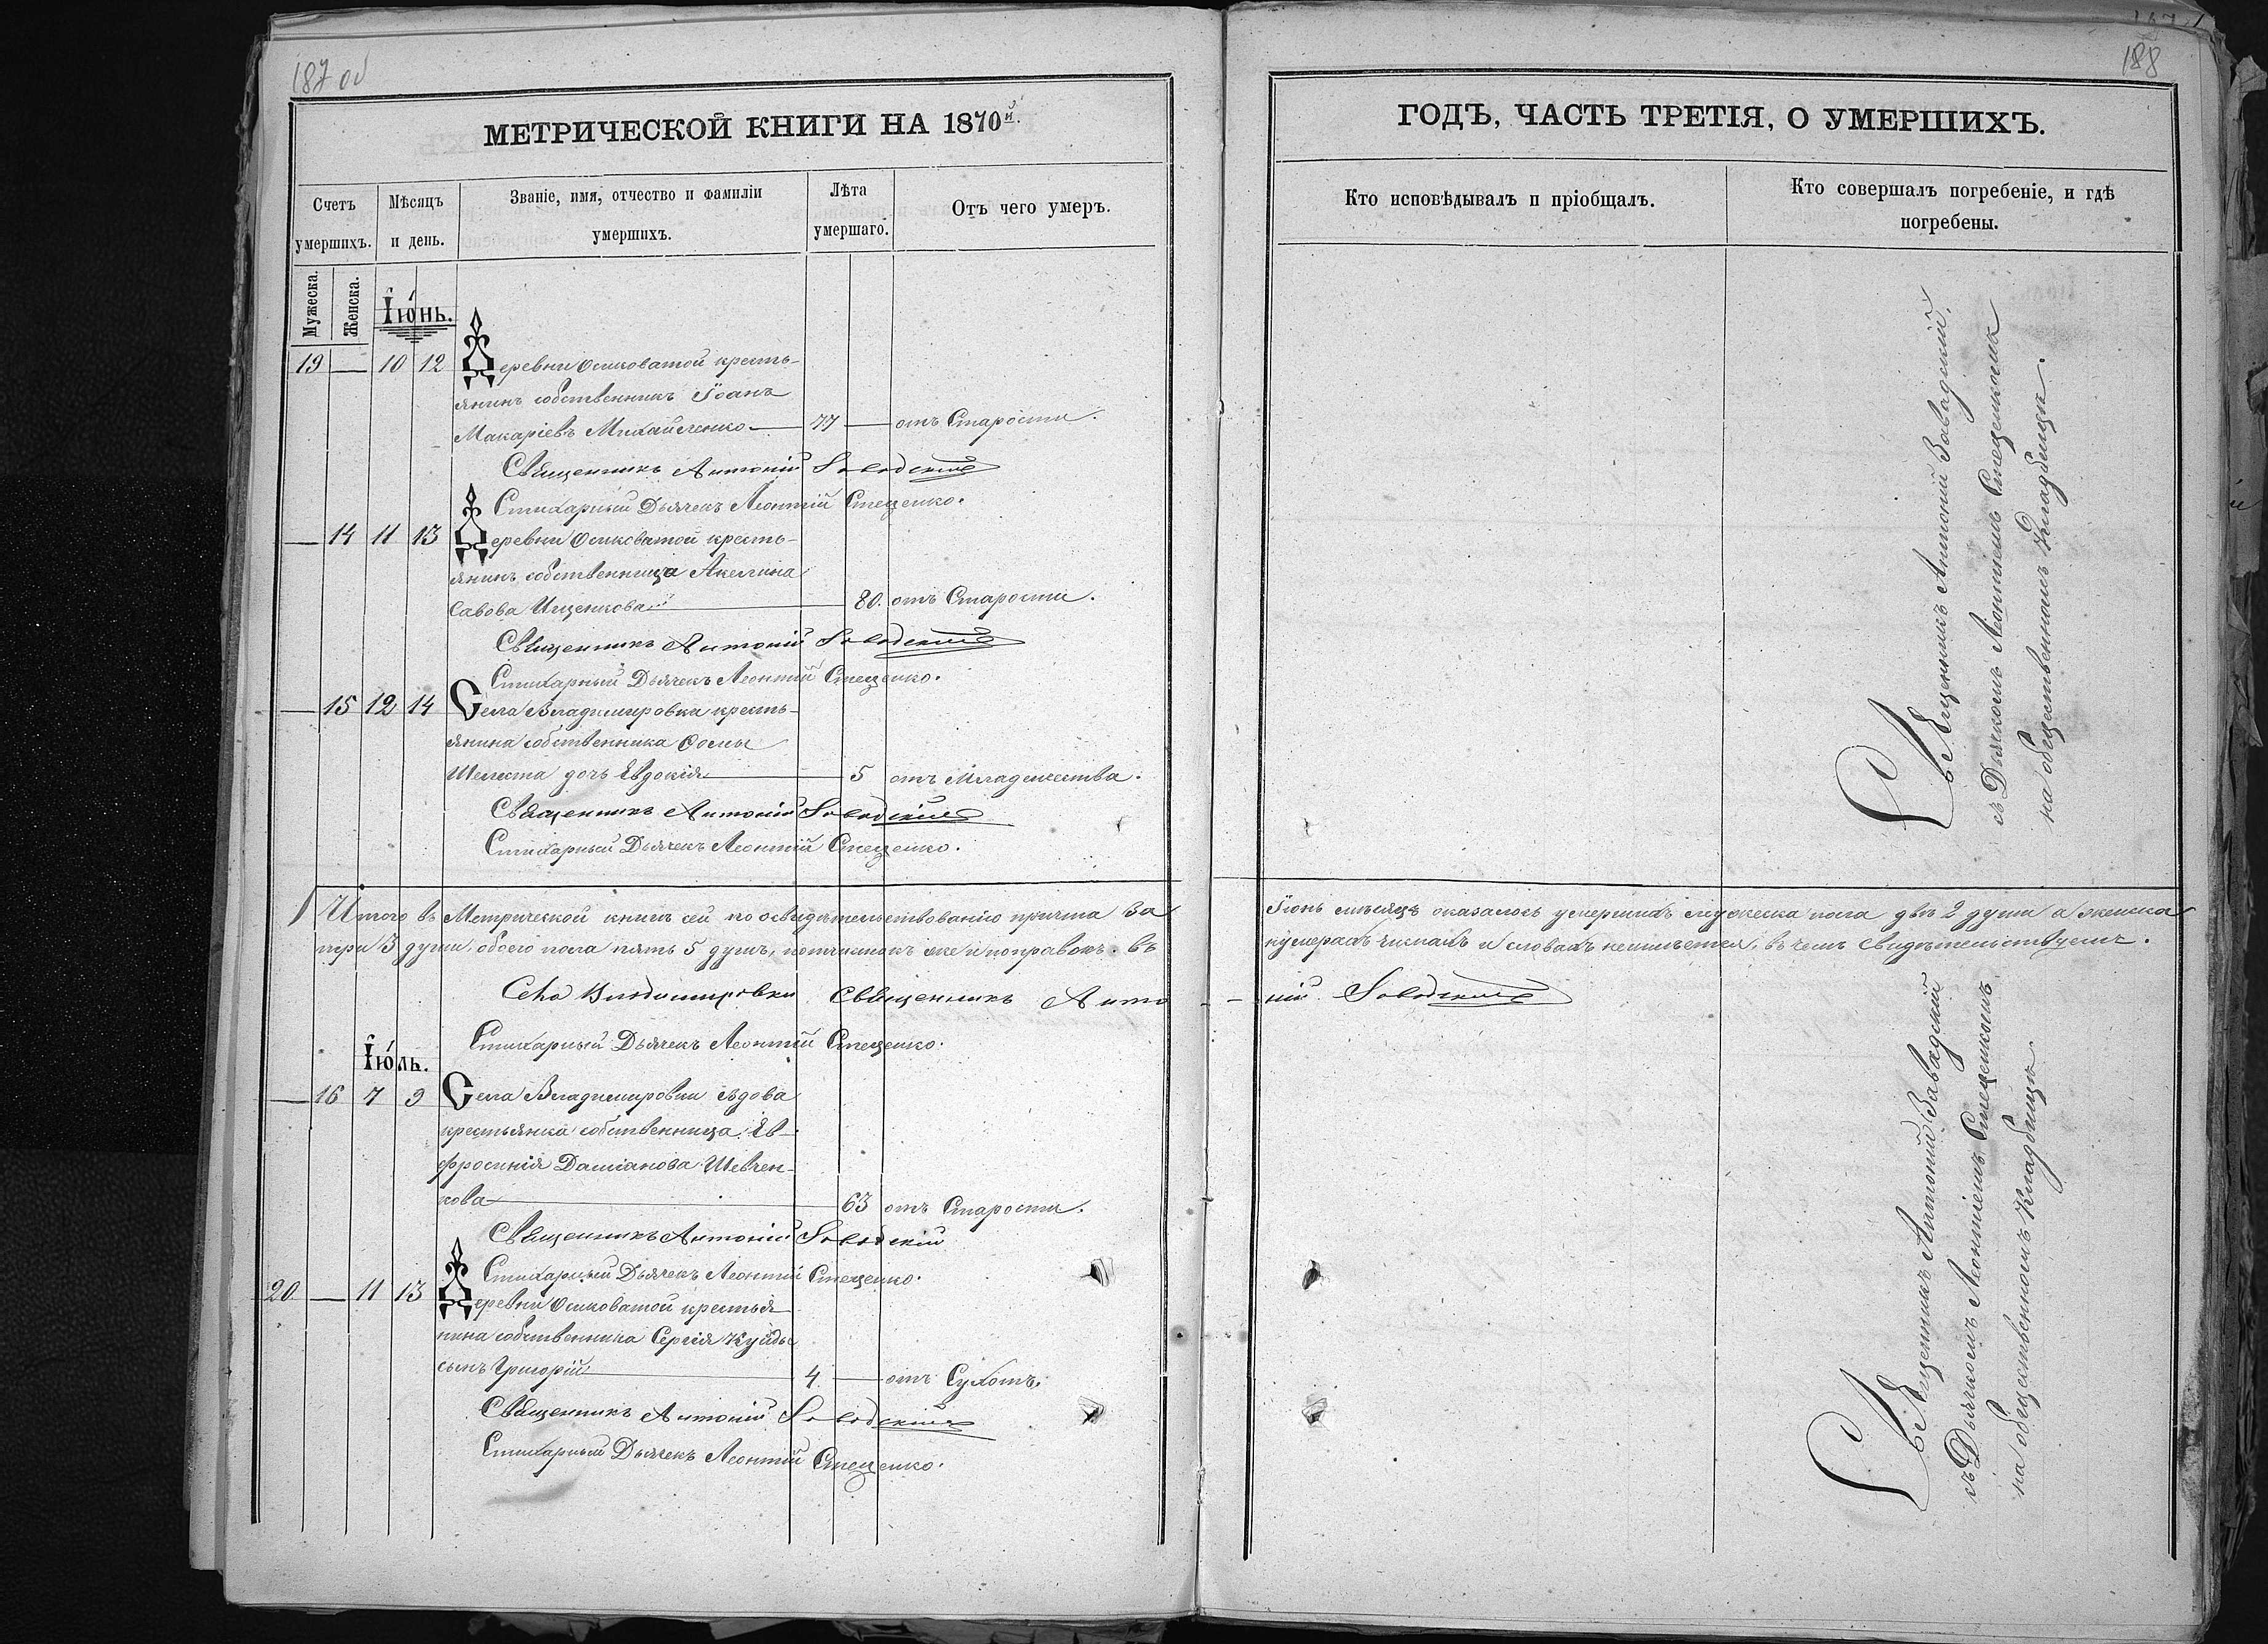 187 об
188
МЕТРИЧЕСКОЙ КНИГИ НА 1870й.
ГОДЪ, ЧАСТЬ ТРЕТІЯ, О УМЕРШИХЪ.
Счетъ умершихъ.
Мѣсяцъ и день.
Званіе, имя, отчество и фамиліи умершихъ.
Лѣта умершаго.
Отъ чего умеръ.
Кто исповѣдывалъ и пріобщалъ.
Кто совершалъ погребеніе, и гдѣ погребены.
Мужеска.
Женска.
Іюнь.
19 — 10 12 Деревни Осиковатой кресть-
янинъ собственникъ Іоанъ
Макаріевъ Михайленко — 77 — отъ Старости.
Священникъ Антоній Заводскій
Стихарный Дьячекъ Леонтій Стеценко.
— 14 11 13 Деревни Осиковатой кресть-
янинъ собственница Акелина
Савова Ищенкова — 80. отъ Старости.
Священникъ Антоній Заводскій
Стихарный Дьячекъ Леонтій Стеценко.
— 15 12 14 Села Владимировки кресть-
янина собственника Фомы
Шелеста дочь Евдокія — 5 отъ Младенчества.
Священникъ Антоній Заводскій
Стихарный Дьячекъ Леонтій Стеценко.
Священникъ Антоній Завадскій,
съ Дьякомъ Леонтіемъ Стеценкомъ
на общественномъ Кладбищѣ.
Итого въ Метрической книгѣ сей по освидѣтельствованію причта за Іюнь мѣсяцъ оказалось умершихъ мужеска пола двѣ 2 души а женска
три 3 души, обоего пола пять 5 душъ, почистокъ же и поправокъ въ нумерахъ числахъ и словахъ неимѣется, въ чемъ свидѣтельствуемъ.
Села Владимировки Священникъ Анто-ній Заводскій
Стихарный Дьячекъ Леонтій Стеценко.
Іюль.
— 16 7 9 Села Владимировки вдова
крестьянка собственница Ев-
фросинія Даміанова Шевчен-
кова — 63 отъ Старости.
Священникъ Антоній Заводскій
Стихарный Дьячекъ Леонтій Стеценко.
20 — 11 13 Деревни Осиковатой крестья
нина собственника Сергія Куйды
сынъ Григорій — 4 — отъ Сухотъ.
Священникъ Антоній Заводскій
Стихарный Дьячекъ Леонтій Стеценко.
Священникъ Антоній Завадскій
съ Дьячкомъ Леонтіемъ Стеценкомъ
на общественномъ Кладбищѣ.